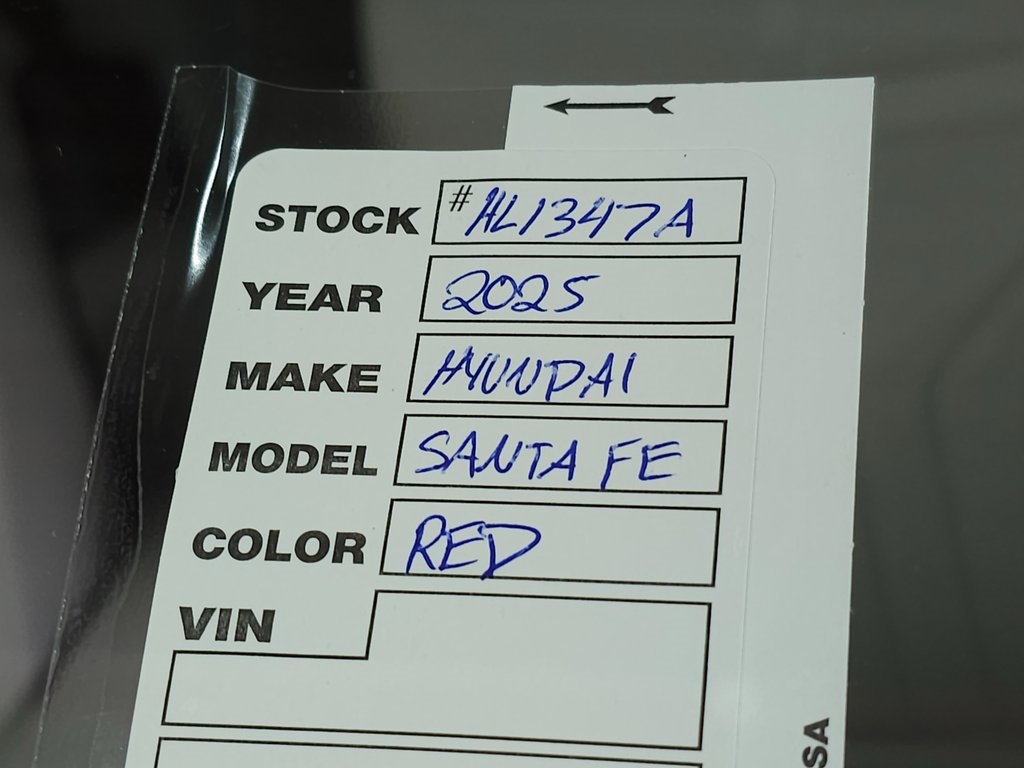 STOCK #HL1347A
YEAR 2025
MAKE HYUNDAI
MODEL SANTA FE
COLOR RED
VIN
SA